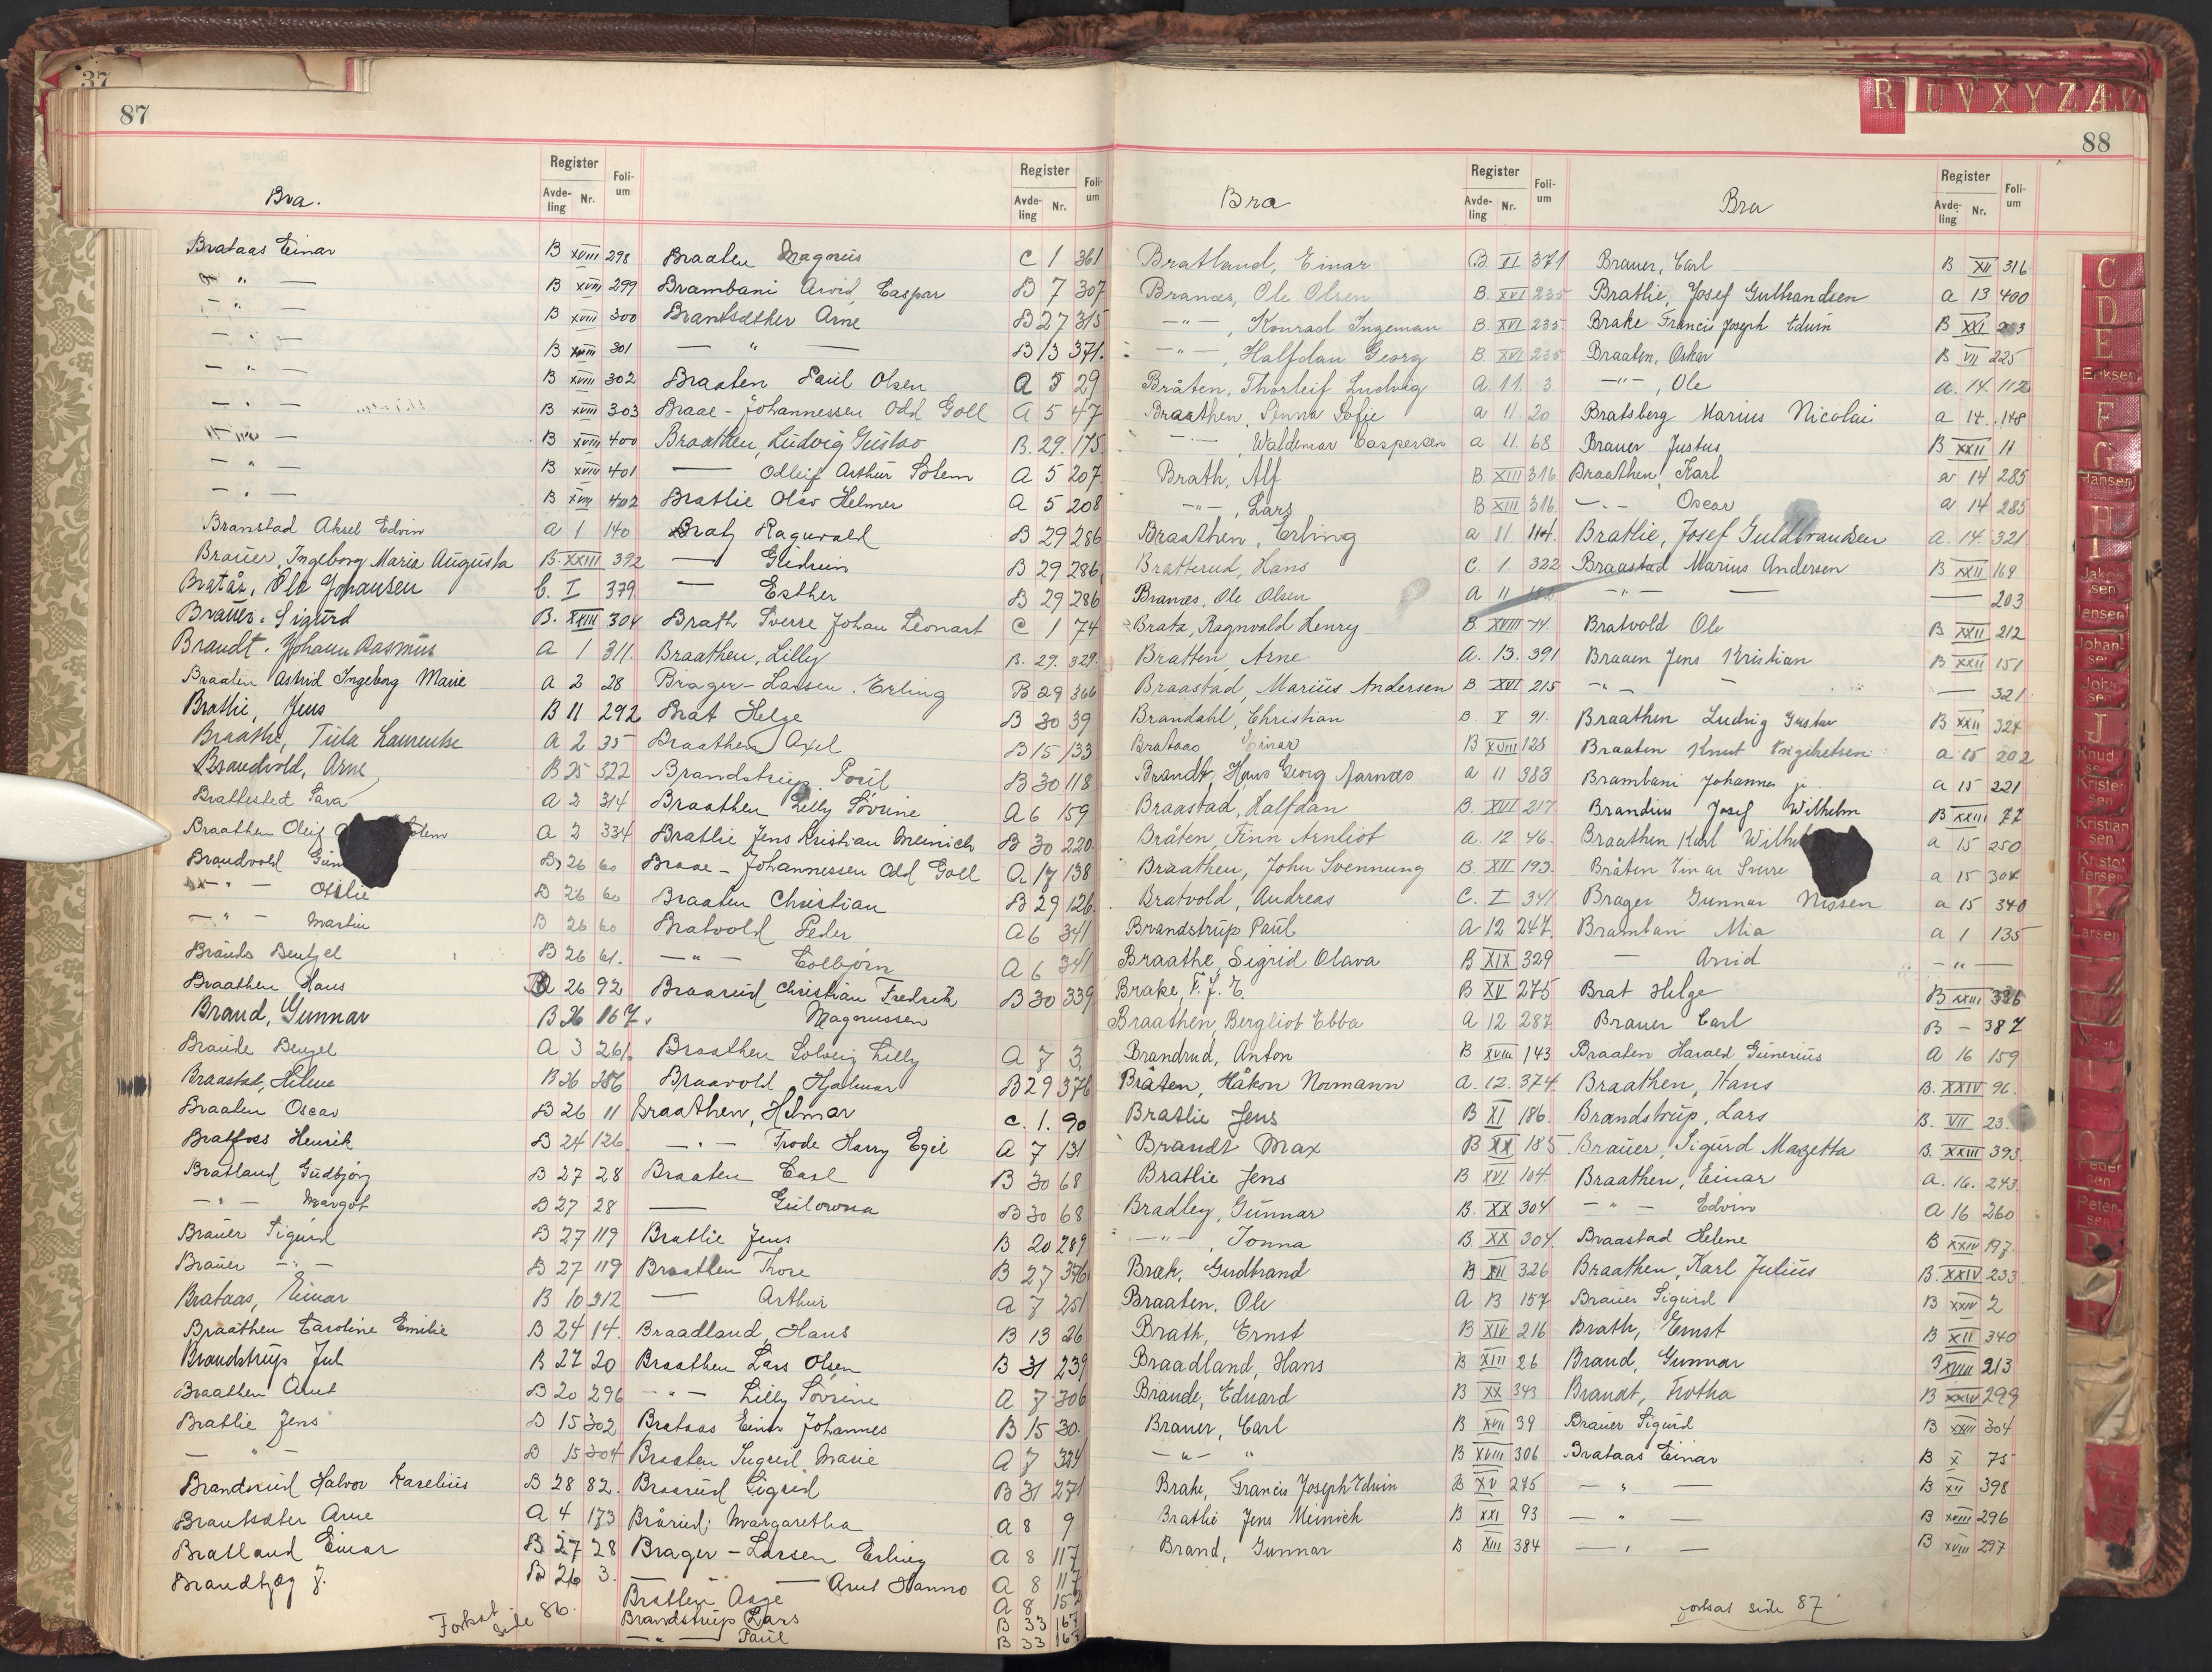 37
87
Bra.
Register
Avde-ling Nr.
Foli-um
Brataas Einar B XVIII 298
" — B XVIII 299
- " - B XVIII 300
- " - B XVIII 301
- " - B XVIII 302
- " - B XVIII 303
- " - B XVIII 400
- " - B XVIII 401
- " - B XVIII 402
Branstad Aksel Edvin a 1 140
Brauer, Ingeborg Maria Augusta B. XXIII 392
Bratås, Ole Johansen C. I 379
Brauer. Sigurd B. XXIII 304
Brandt. Johann Rasmus A 1 311.
Braaten Astrid Ingeborg Marie A 2 28
Bratlie, Jens B 11 292
Braathe, Tula Laurentse A 2 35
Brandvold, Arne B 25 322
Brattested Sara A 2 314
Braathen Oleif A 2 334
Brandvold B 26 60
- " - Otilie B 26 60
- " - Martin B 26 60
Braude Bentzel B 26 61.
Braathen Hans 26 92
Brand, Gunnar B 26 167.
Braude Benzel A 3 261
Braastad, Helene B 26 286
Braaten Oscar B 26 11
Bratfoss Henrik B 24 126
Bratland Gudbjørg B 27 28
- " - Margot B 27 28
Brauer Sigurd B 27 119
Brauer - " - B 27 119
Brataas, Einar B 10 312
Braathen Caroline Emilie B 24 14.
Brandstrup Jul B 27 20
Braathen Arnt B 20 296
Bratlie Jens B 15 302
— " — B 15 304
Brandsrud Halvor Karelius B 28 82.
Brantsæter Arne A 4 173
Bratland Einar B 27 28
Brandbjæg J. B 26 3.
Forts side 86.
Register
Avde-ling Nr.
Foli-um
Braaten Magnus C 1 361
Brambani Arvid Caspar B 7 307
Brantsæther Arne B 27 315
— " — B 13 371.
Braaten Paul Olsen A 5 29
Braae - Johannessen Odd Goll A 5 47
Braathen, Ludvig Gustav B. 29. 175.
— Olleif Arthur Holem A 5 207.
Bratlie Olav Helmer A 5 208
Bratz Ragnvald B 29 286
— Gudrun B 29 286
— Esther B 29 286
Brath Sverre Johan Leonart C 1 74
Braathen, Lilly B. 29. 329.
Brager-Larsen. Erling B 29 366
Brat Helge B 30 39
Braathen Axel B 15 133
Brandstrup Poul B 30 118
Braathen Lilly Sovine A 6 159
Bratlie Jens Kristian Meinich B 30 220.
Braae - Johannessen Odd Goll A 17 138
Braaten Christian B 29 126.
Bratvold Peder A 6 341
— " — Torbjørn A 6 341
Braarud Christian Fredrik Magnussen B 30 339
Braathen Solveig Lilly A 7 3
Braavold Hjalmar B 29 376
Braathen, Helmar C. 1. 90
— " — Frode Harry Egil A 7 131
Braaten Carl B 30 68
— Gulovna B 30 68
Bratlie Jens B 20 289
Braathen Thore B 27 376
— Arthur A 7 251
Braadland, Hans B 13 26
Braathen Lars Olsen B 31 239
— " — Lilly Sovine A 7 306
Brataas Einar Johannes B 15 30.
Braaten Sugrid Marie A 7 324
Braarud Sigrid B 31 271
Brårud; Margaretha A 8 9
Brager - Larsen Erling A 8 117
— Arnt Hanno A 8 117
Bratlien Aage A 8 152
Brandstrup Lars B 33 167
— " — Paul B 33 167
R U V X Y Z Æ Ø
88
Bra
Register
Avde-ling Nr.
Foli-um
Bratland, Einar B. VI 371
Branæs, Ole Olsen B. XVI 235
— " —, Konrad Ingeman B. XVI 235.
— " —, Halfdan Georg B. XVI 235
Bråten, Thorleif Ludvig A. 11. 3.
Braathen, Anna Sofie a 11. 20
— " —, Waldemar Caspersen a 11. 68
Brath, Alf B. XIII 316
— " —, Lars B XIII 316.
Braathen, Erling a 11 114.
Bratterud, Hans C. 1. 322
Branæs, Ole Olsen a 11
Brata, Ragnvald Henry B. XVIII 74.
Bratten, Arne A. 13. 391
Braastad, Marius Andersen B. XVI 215
Brandahl, Christian B. V 91.
Brataas, Einar B XVIII 128
Brandt, Hans Georg Aarnæs a 11 383
Braastad, Halfdan B. XVI 217
Bråten, Finn Arnliot a. 12. 46.
Braathen, John Svennung B. XII 193.
Bratvold, Andreas C. I 341
Brandstrup Paul A 12 247.
Braathe, Sigrid Olava B XIX 329
Brake, F. J. E. B XV 275
Braathen, Bergliot Ebba A 12 287
Brandrud, Anton B XVIII 143
Bråten, Håkon Normann A. 12. 374.
Bratlie Jens B XI 186.
Brandt Max B XX 185
Bratlie Jens B XVI 104.
Bradley, Gunnar B. XX 304
— " —, Jonna B. XX 304.
Bræk, Gudbrand B XII 326
Braaten, Ole A 13 157
Brath, Ernst B XIV 216
Braadland, Hans B XIII 26
Braude, Eduard B XX 343
Brauer, Carl B XVII 39
— " — " B XVIII 306
Brake, Francis Joseph Edwin B XV 275
Bratlie Jens Meinich B XXI 93
Brand, Gunnar B XIII 384
Bra
Register
Avde-ling Nr.
Foli-um
Brauer, Carl B XII 316
Bratlie, Josef Gulbrandsen a 13 400
Brake Francis Joseph Edwin B XXI 203
Braaten, Oskar B VII 225
— " —, Ole a. 14. 112
Bratsberg Marius Nicolai a 14. 148
Brauer Justus B XXII 11
Braathen, Karl a 14 285
— " — Oscar a 14 285
Bratlie, Josef Guldbrandsen A. 14. 321
Braastad Marius Andersen B XXII 169
— " — — 203
Bratvold Ole B XXII 212
Braaen Jens Kristian B XXII 151
- " - — 321
Braathen Ludvig Gustav B XXII 324
Braaten Knut Engebretsen a 15 202
Brambani Johannes jr. a 15 221
Brandius Josef Wilhelm B XXIII 77
Braathen Karl a 15 250
Bråten Einar Sverre a 15 304
Brager Gunnar Nissen a 15 340
Brambani Mia a 1 135
— Arvid — " —
Brat Helge B XXIII 336
Brauer Carl B — 387
Braaten Harald Gunerius A 16 159
Braathen, Hans B. XXIV 96.
Brandstrup, Lars B. VII 23.
Brauer, Sigurd Mazetta B. XXIII 393.
Braathen, Einar A. 16. 243.
— " — Edvin A 16 260
Braastad Helene B XXIV 197.
Braathen, Karl Julius B. XXIV 233.
Brauer Sigurd B XXIV 2
Brath, Ernst B XII 340
Brand, Gunnar XVIII 213
Brandt, Trotha B XXIV 299
Brauer Sigurd B XXIII 304
Brataas Einar B X 75
— " — B XII 398
— " — B XVIII 296
— " — B XVIII 297
fortsat side 87
C
D
E
Eriksen
F
G
Hansen
H
I
Jakobsen
Jensen
Johansen
Johnsen
J
Knudsen
Kristensen
Kristiansen
Kristoffersen
K
Larsen
L
Nilsen
O
Pedersen
Petersen
P